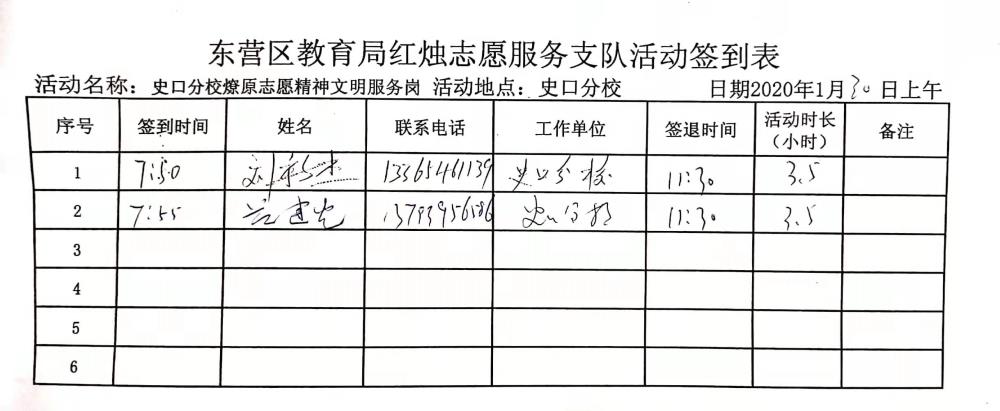 东营区教育局红烛志愿服务支队活动签到表
活动名称：史口分校燎原志愿精神文明服务岗 活动地点：史口分校 日期2020年1月30日上午
序号 签到时间 姓名 联系电话 工作单位 签退时间 活动时长（小时） 备注
1 7:50 刘 13365461139 史口分校 11:30 3.5
2 7:55 建光 13793956586 史口分校 11:30 3.5
3
4
5
6